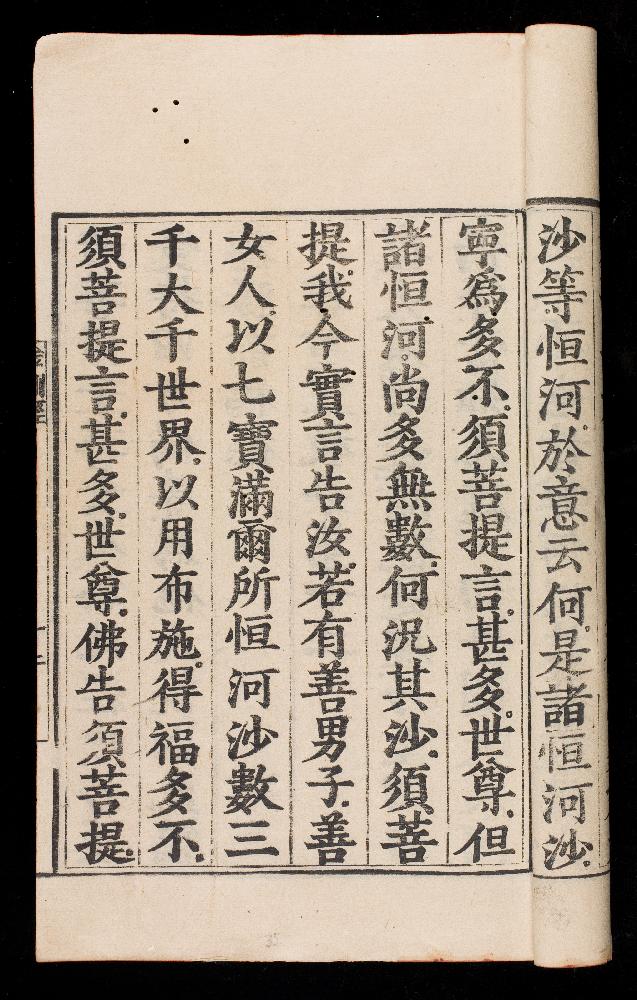 沙等恒河於意云何是諸恒河沙
寜爲多不須菩提言甚多世尊但
諸恒河尚多無數何況其沙須菩
提我今實言告汝若有善男子善
女人以七寶滿爾所恒河沙數三
千大千世界以用布施得福多不
須菩提言甚多世尊佛告須菩提